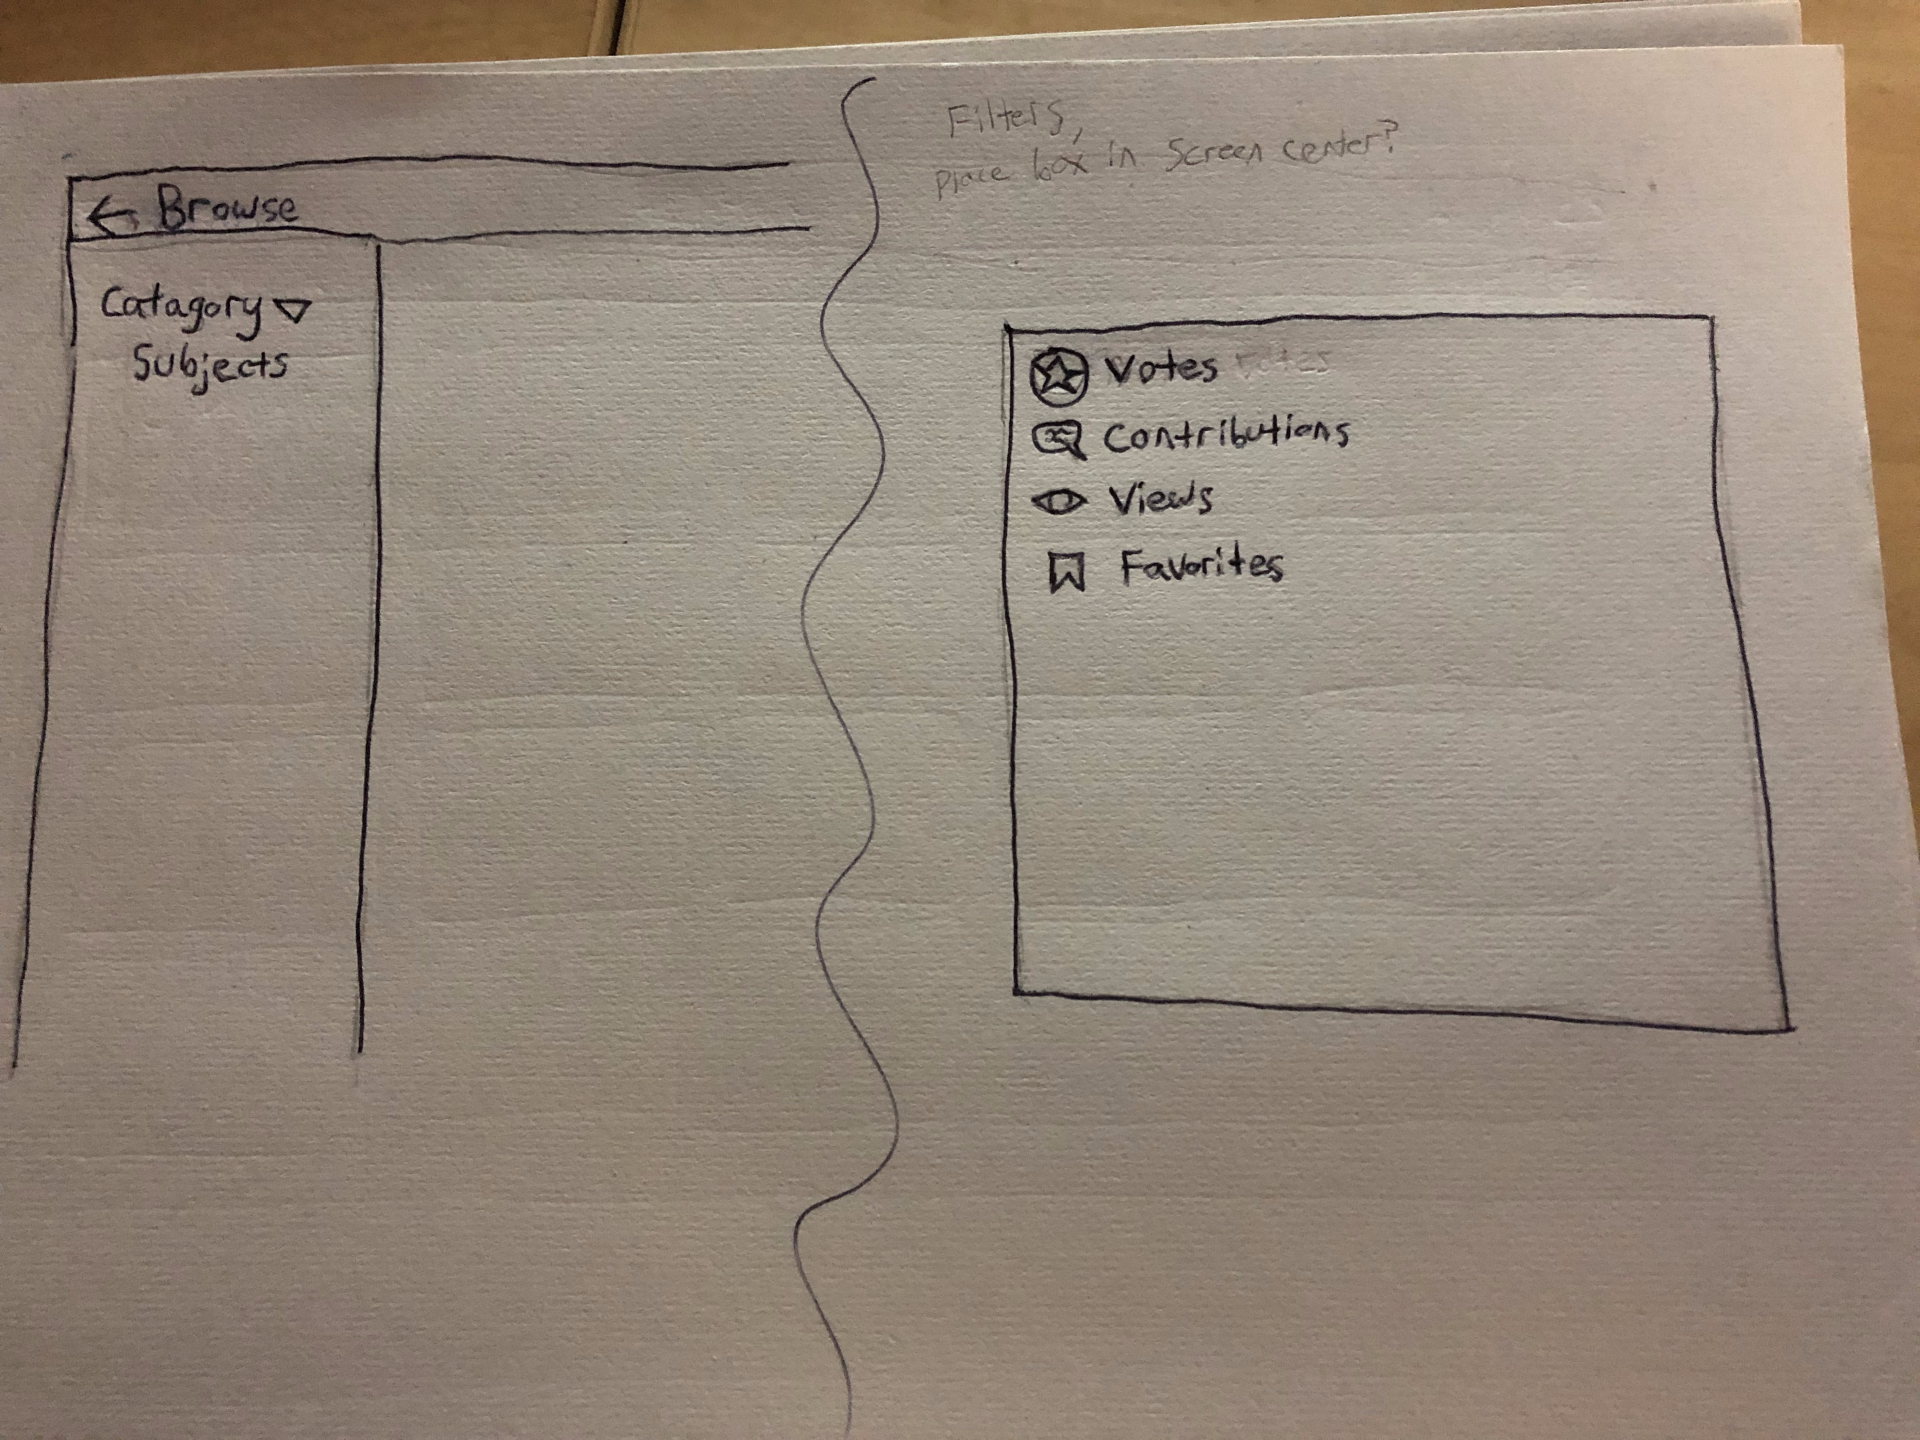 Browse
Catagory
Subjects
Filters,
place box in Screen center?
Votes votes
Contributions
Views
Favorites